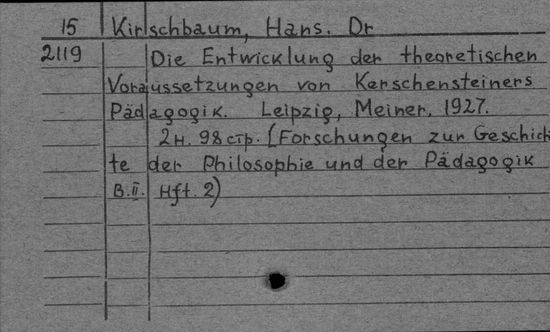 15 Kirschbaum, Hans. Dr
2119 Die Entwicklung der theoretischen
Voraussetzungen von Kerschensteiners
Pädagogik. Leipzig, Meiner, 1927.
2н. 98 стр. (Forschungen zur Geschich
te der Philosophie und der Pädagogik
B.II. Hft. 2)